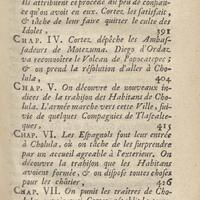 Ils attribuent ce procédé au peu de compas-
qu'ils avoit en eux. Cortez les satisfait,
& tâche de leur faire quitter le culte des
Idoles, 391
CHAP. IV. Cortez dépêche les Ambas-
sadeurs de Motezuma. Diego d'Ordaz
va reconnoître le Volcan de Popocatepec;
& on prend la résolution d'aller à Cho-
lula, 404
CHAP. V. On découvre de nouveaux in-
dices de la trahison des Habitans de Cho-
lula. L'armée marche vers cette Ville, sui-
vie de quelques Compagnies de Tlascalte-
ques, 415
CHAP. VI. Les Espagnols font leur entrée
à Cholula, où on tâche de les surprendre
par un accueil agréable à l'exterieur. On
découvre la trahison que les Habitans
avoient formée, & on dispose toutes choses
pour les châtier, 426
CHAP. VII. On punit les traîtres de Cho-